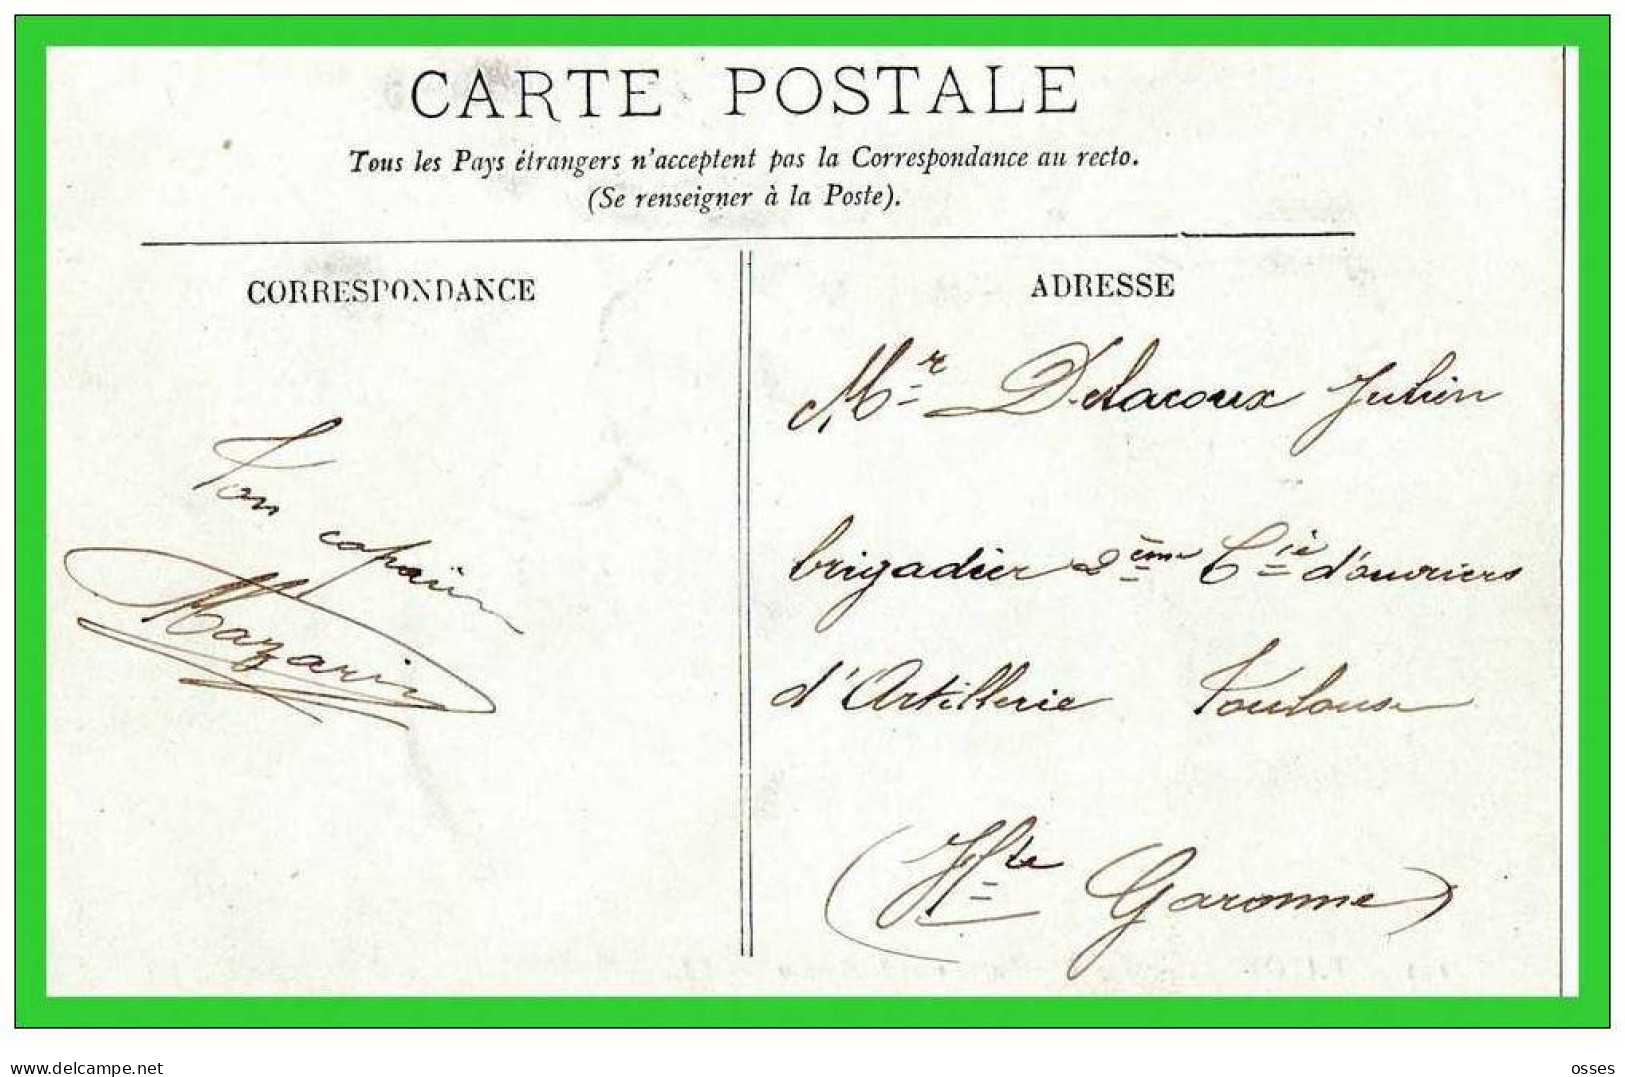 CARTE POSTALE
Tous les Pays étrangers n'acceptent pas la Correspondance au recto.
(Se renseigner à la Poste).
CORRESPONDANCE
Ton copain
Mazarin
ADRESSE
Mr Delacoux Julien
brigadier 2ème Cie d'ouvriers
d'Artillerie Toulouse
(Hte Garonne)
www.delcampe.net
osses